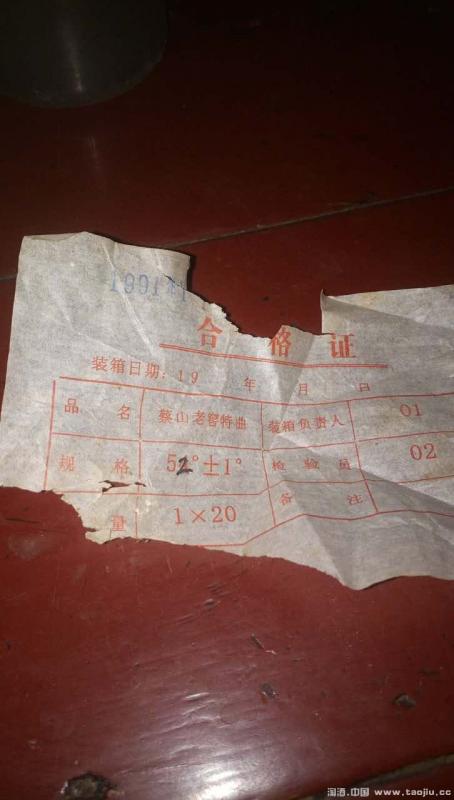 合格证
装箱日期:19 年 月 日
品名 蔡山老窖特曲 装箱负责人 01
规格 52°±1° 检验员 02
量 1×20 备注
淘酒.中国 www.taojiu.cc